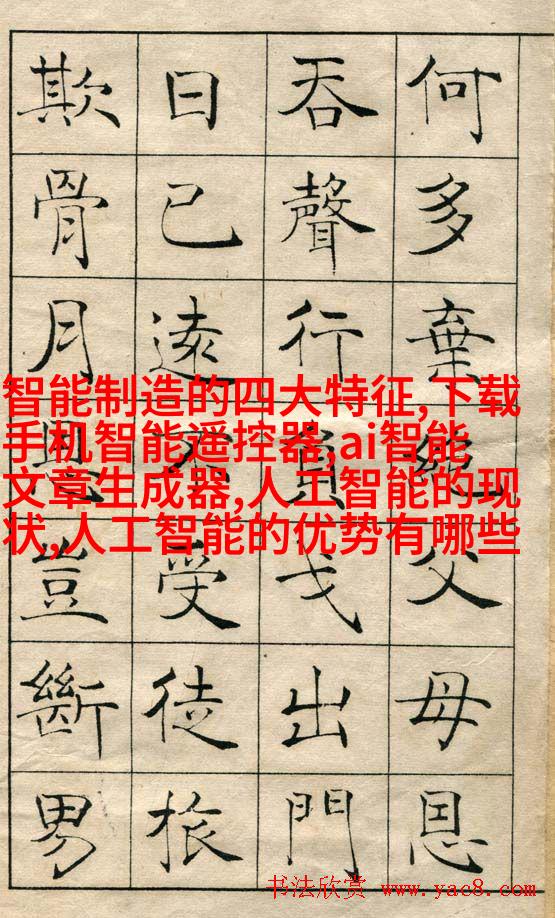 何多棄絕父母恩
吞聲行負戈出門
日已遠不受徒旅
欺骨月恩豈斷男
智能制造的四大特征,下载
手机智能遥控器,ai智能
文章生成器,人工智能的现
状,人工智能的优势有哪些
书法欣赏 www.yac8.com